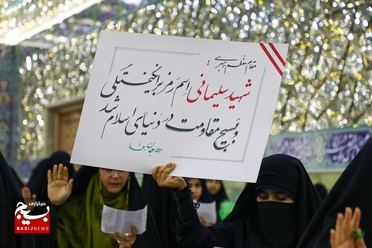 مقام معظم رهبری:
شهید سلیمانی اسم رمز برانگیختگی
و بسیج مقاومت در دنیای اسلام شد
خبرگزاری
بسیج
BASIJNEWS